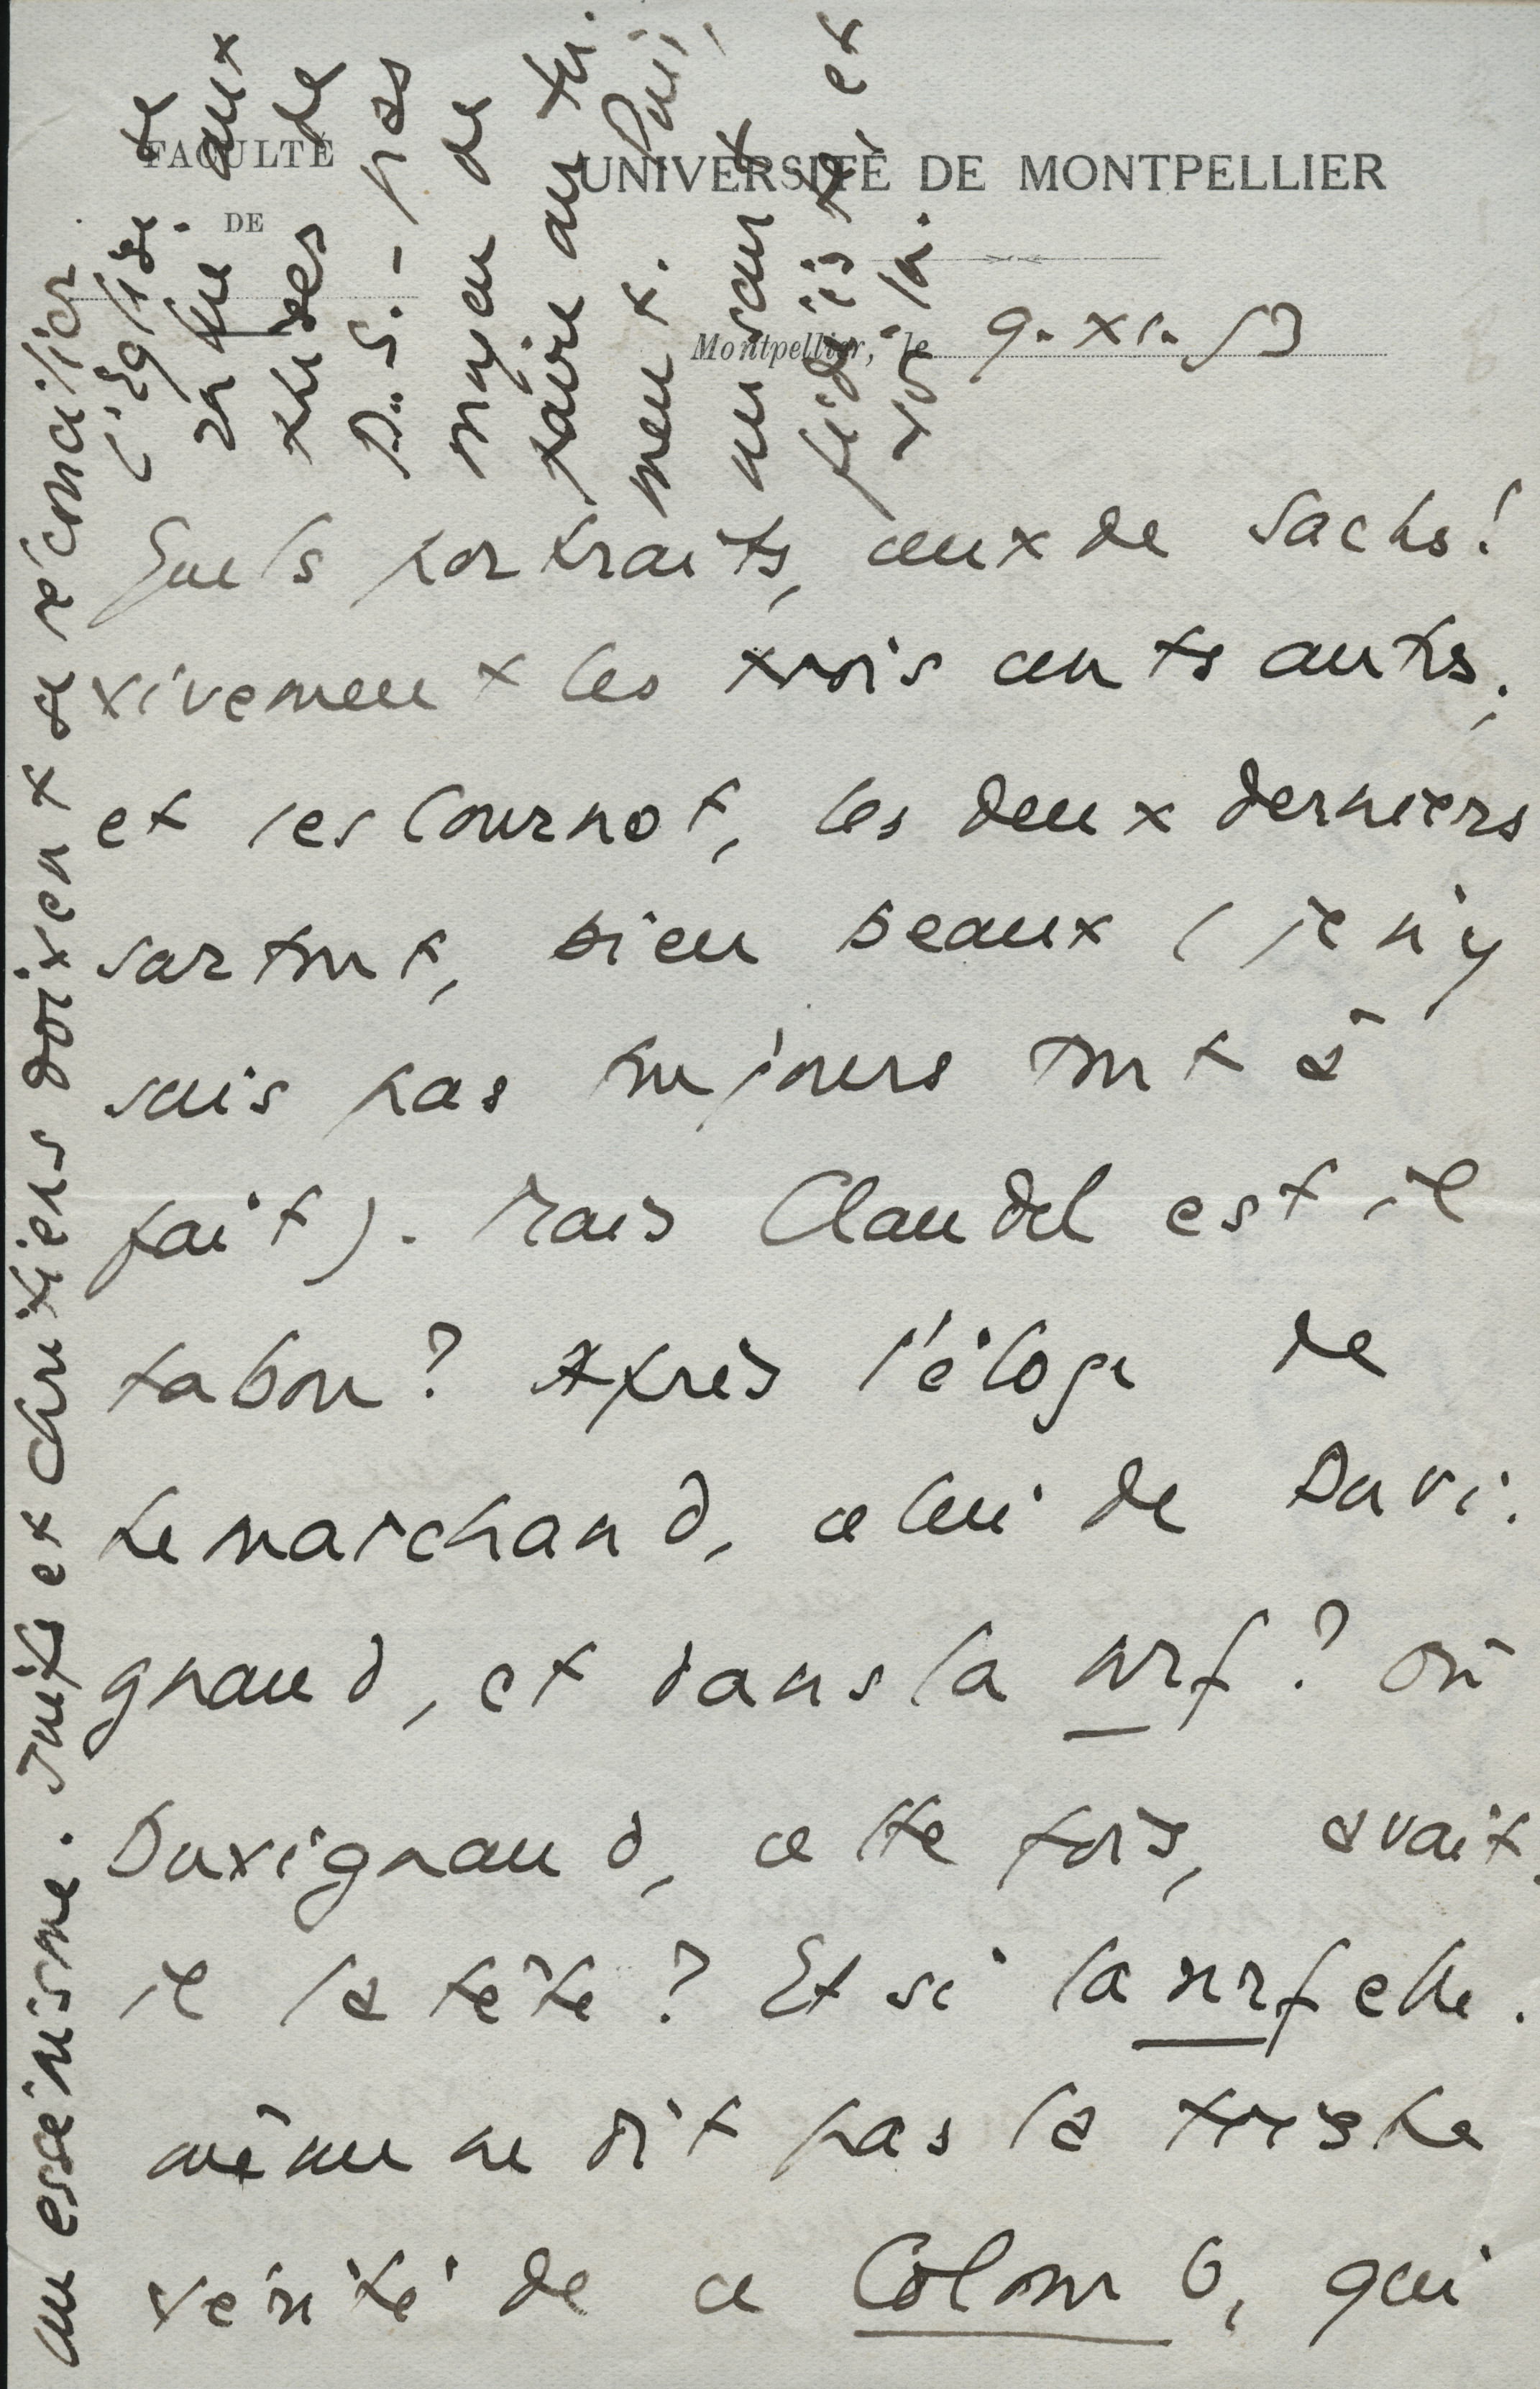 FACULTÉ
DE
UNIVERSITÉ DE MONTPELLIER
Montpellier, le 9. XI. 53
Quels portraits, ceux de Sachs!
vivement les trois cents auts,
et les Cournot, les deux derniers
surtout, bien beaux (je n'y
suis pas toujours tout à
fait). Mais Claudel est-il
tabou? Après l'éloge de
Lemarchand, celui de Duvi-
gnaud, et dans la nrf? Où
Duvignaud, cette fois, avait-
il la tête? Et si la nrf elle-
même ne dit pas la triste
vérité de ce Colomb, qui
au essénisme. Juifs et Chrétiens doivent se réconcilier
de
aux
de
P.-S. - pas
moyen de
faire autre-
ment. Puis,
fidélité, et
voilà.